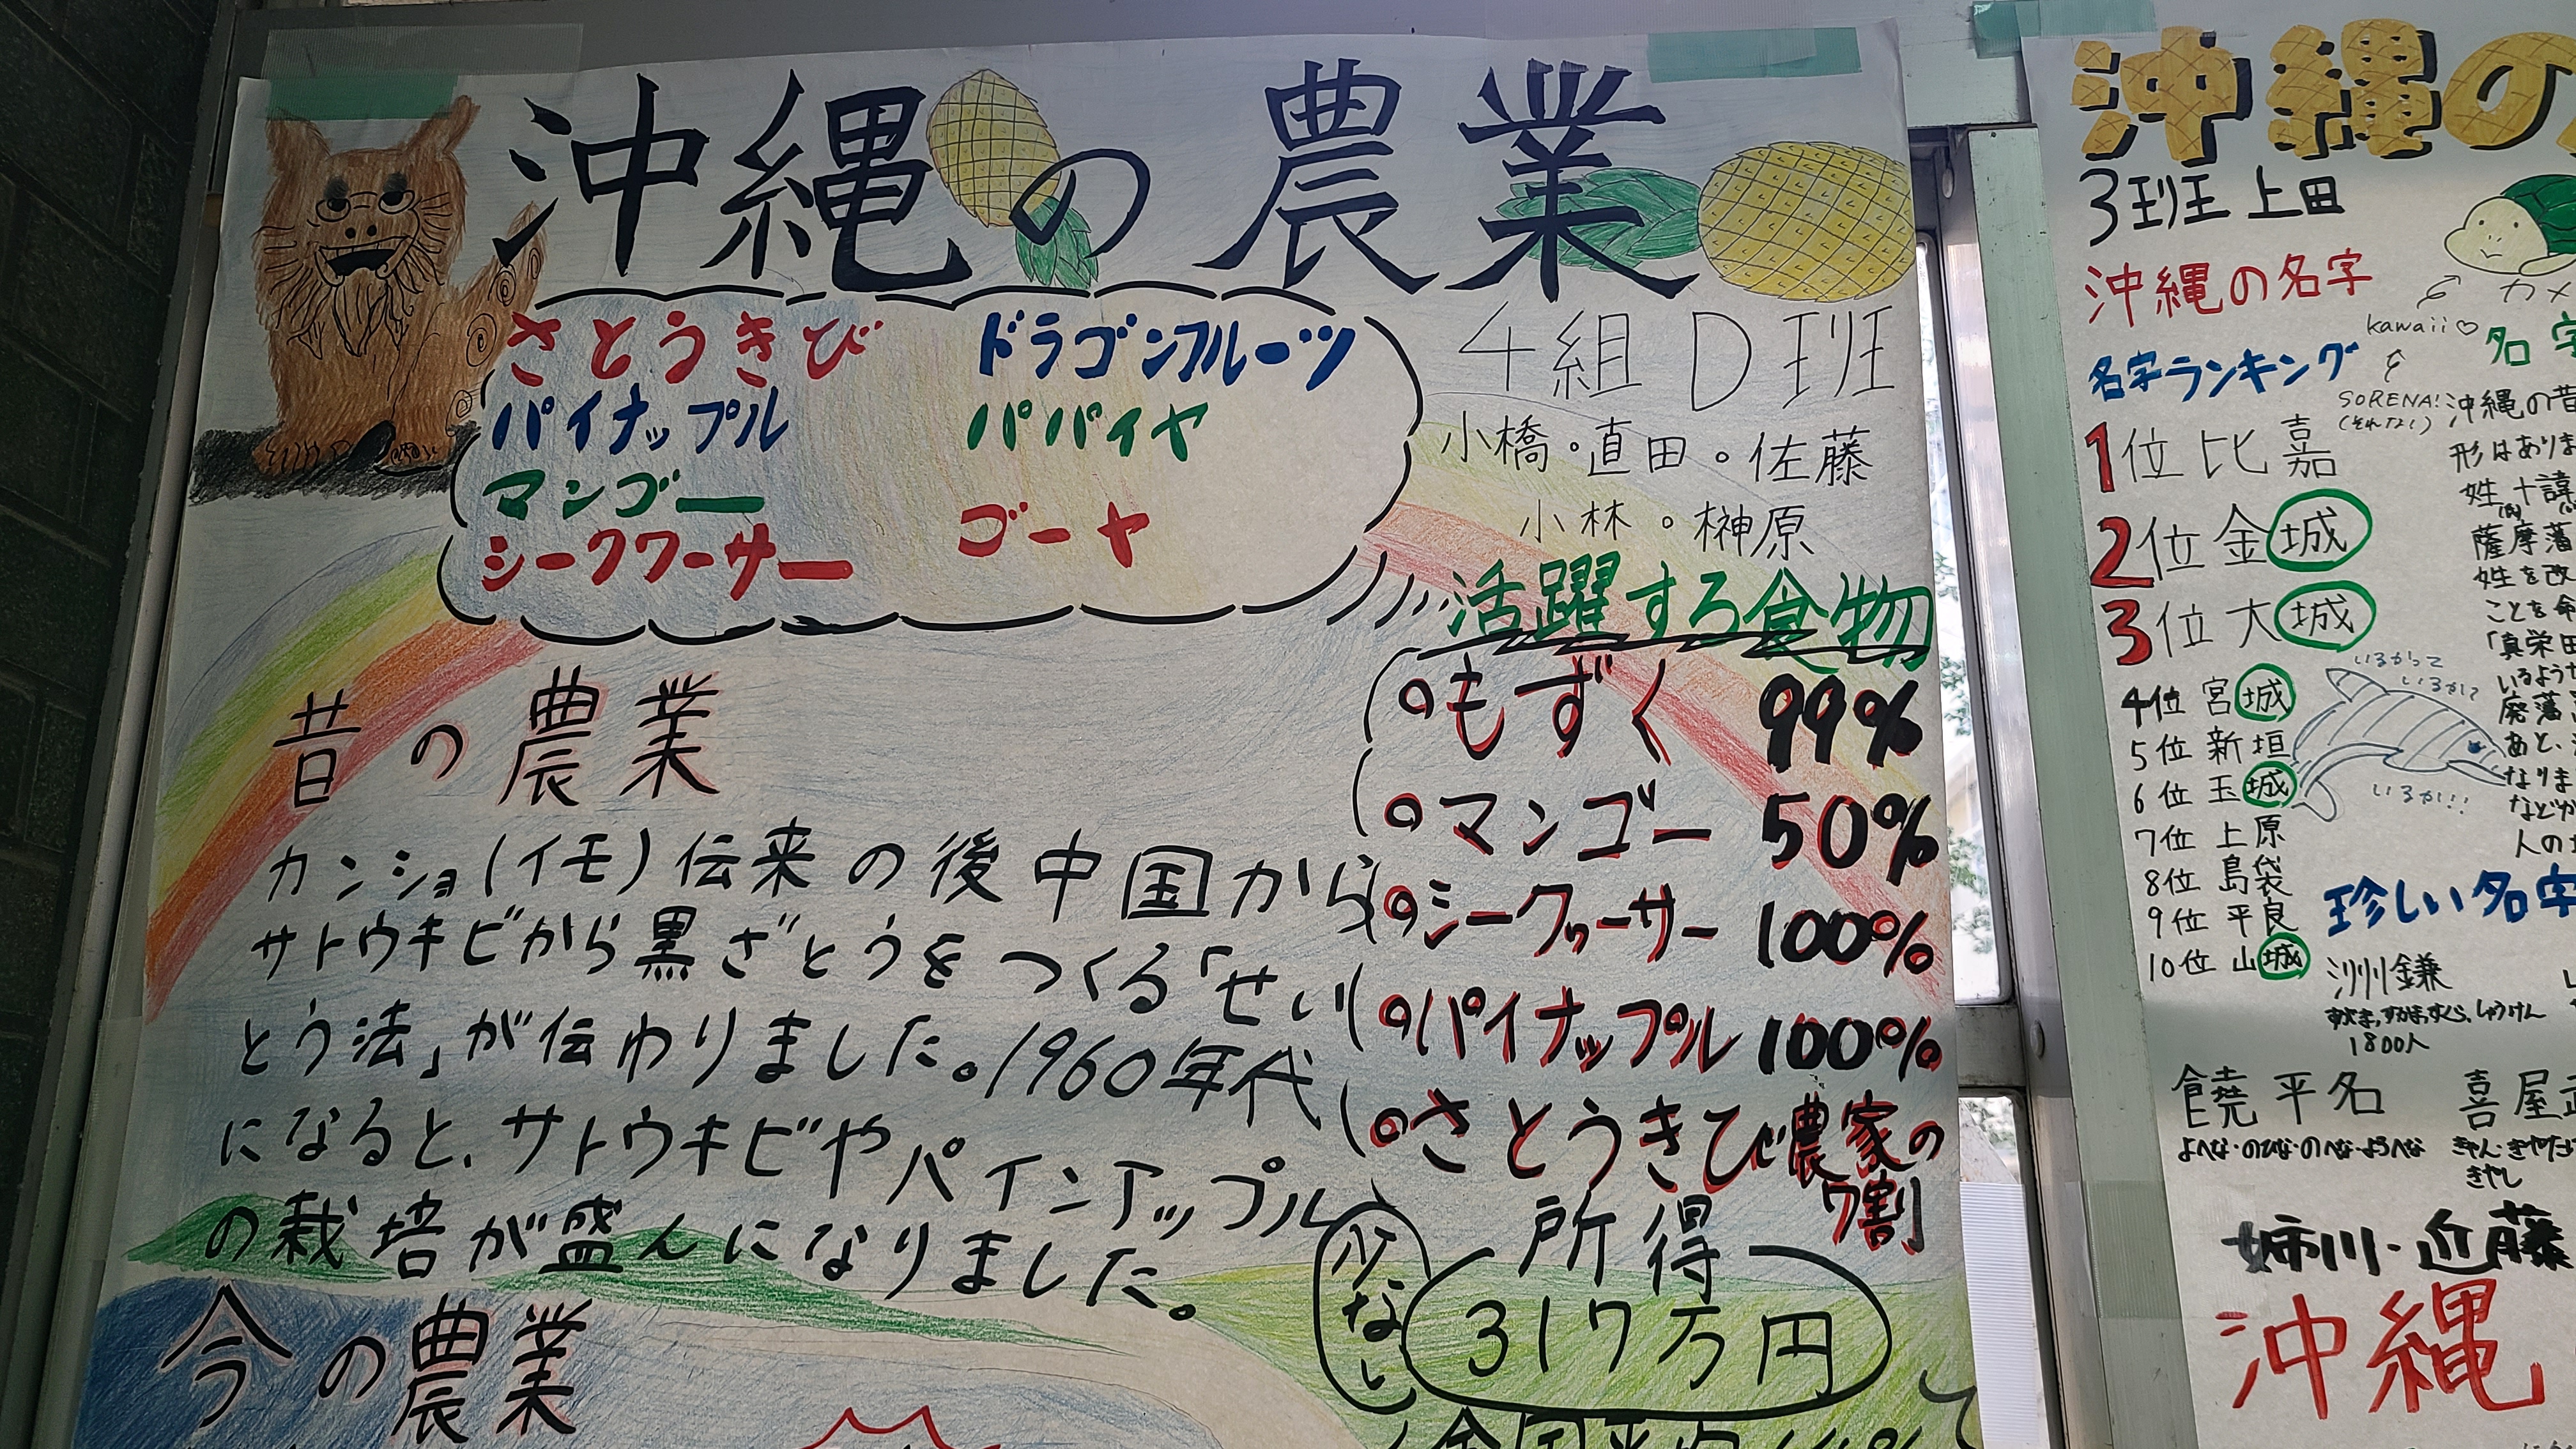 沖縄の農業
さとうきび ドラゴンフルーツ
パイナップル パパイヤ
マンゴー
シークワーサー ゴーヤ
4組D班
小橋・直田・佐藤
小林・榊原
活躍する食物
もずく 99%
マンゴー 50%
シークヮーサー 100%
パイナップル 100%
さとうきび農家の
7割
所得
317万円
少なし
昔の農業
カンショ(イモ)伝来の後中国から
サトウキビから黒ざとうをつくる「せい
とう法」が伝わりました。1960年代
になると、サトウキビやパインアップル
の栽培が盛んになりました。
今の農業
沖縄の
3班 上田
沖縄の名字
カメ
kawaii♡
SORENA!
名字ランキング
1位 比嘉
2位 金城
3位 大城
4位 宮城
5位 新垣
6位 玉城
7位 上原
8位 島袋
9位 平良
10位 山城
いるかって
いるか?
いるか!!
沖縄の昔
形はありま
薩摩藩
姓を改
ことを命
「真栄田
いるよう
廃藩
あと、
なりま
などが
人の
珍しい名字
洌鎌
1800人
饒平名
よへな・のひな・のへな・ようへな
喜屋武
姉川・近藤
沖縄